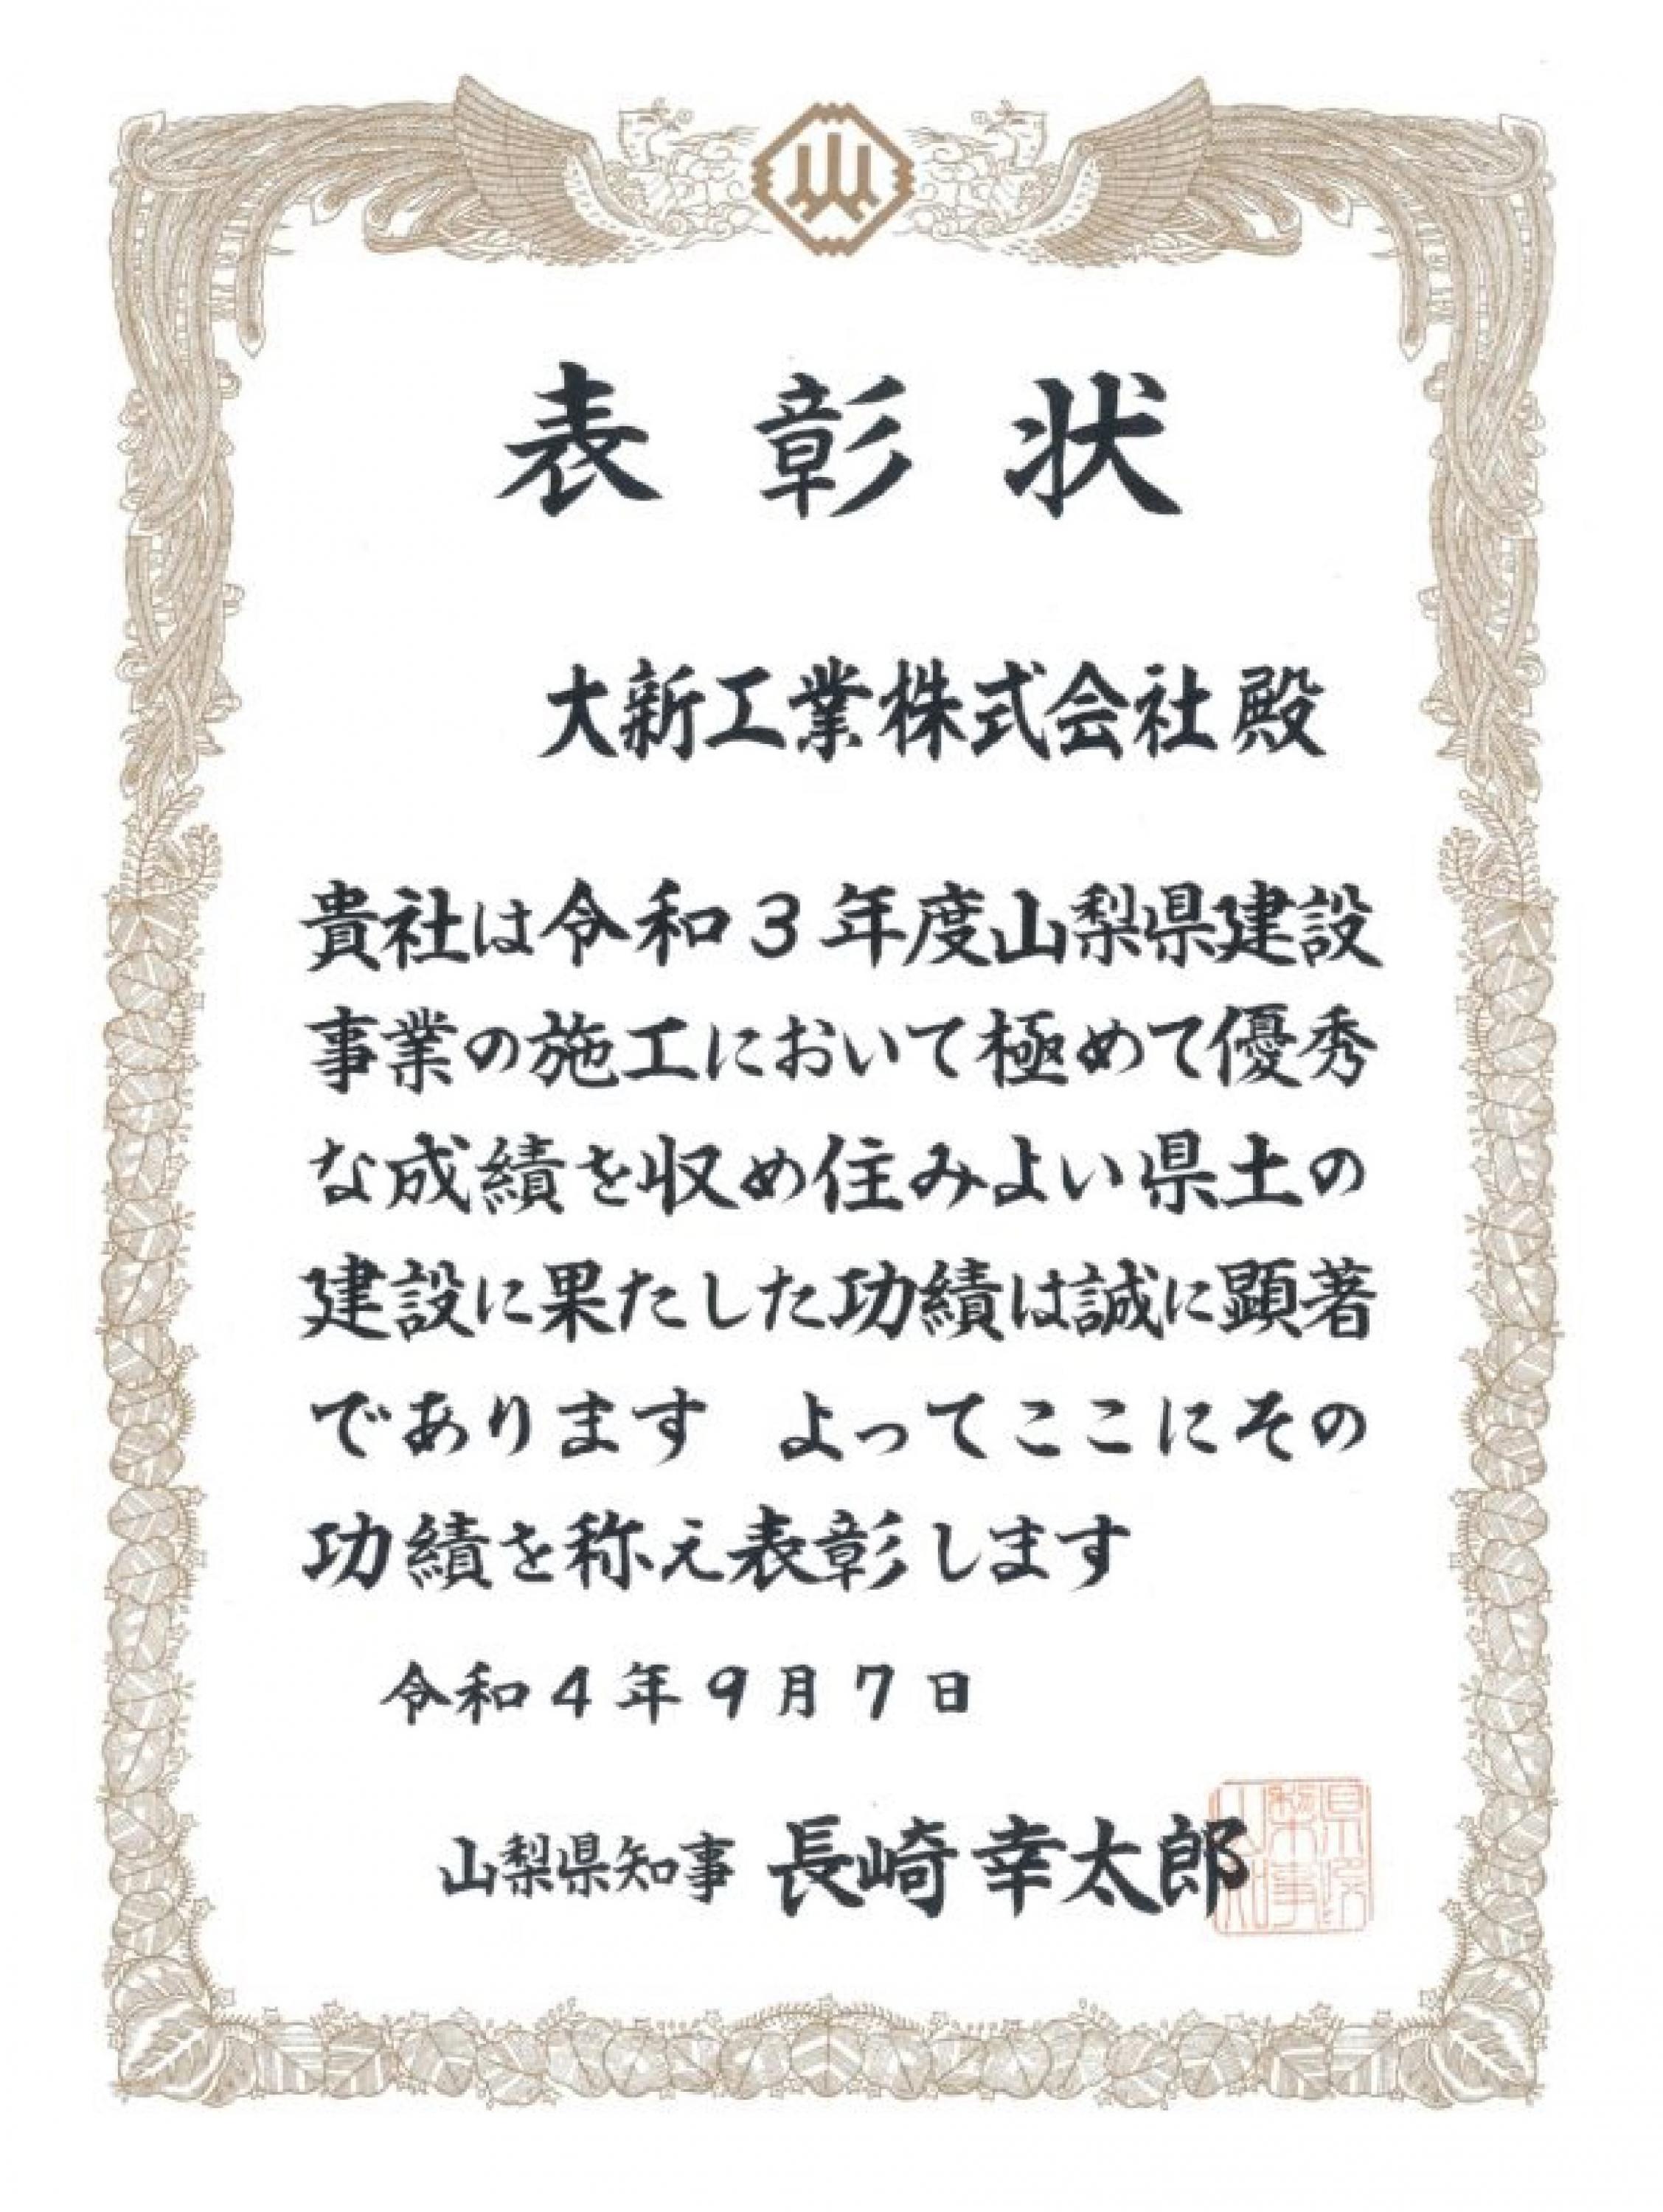 表彰状
大新工業株式会社 殿
貴社は令和3年度山梨県建設
事業の施工において極めて優秀
な成績を収め住みよい県土の
建設に果たした功績は誠に顕著
であります　よってここにその
功績を称え表彰します
令和4年9月7日
山梨県知事 長崎幸太郎